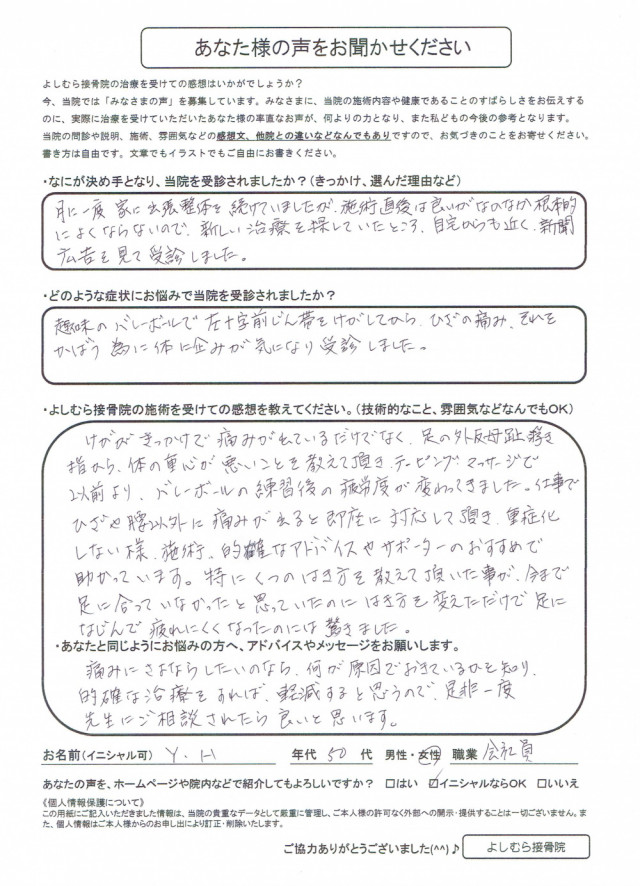 あなた様の声をお聞かせください
よしむら接骨院の治療を受けての感想はいかがでしょうか？
今、当院では「みなさまの声」を募集しています。みなさまに、当院の施術内容や健康であることのすばらしさをお伝えする
のに、実際に治療を受けていただいたあなた様の率直なお声が、何よりの力となり、また私どもの今後の参考となります。
当院の問診や説明、施術、雰囲気などの感想文、他院との違いなどなんでもありですので、お気づきのことをお寄せください。
書き方は自由です。文章でもイラストでもご自由にお書きください。
・なにが決め手となり、当院を受診されましたか？（きっかけ、選んだ理由など）
月に一度 家に出張整体を続けていましたが、施術直後は良いがなかなか根本的
によくならないので、新しい治療を探していたところ、自宅からも近く、新聞
広告を見て受診しました。
・どのような症状にお悩みで当院を受診されましたか？
趣味のバレーボールで左十字前じん帯をけがしてから、ひざの痛み、それを
かばう為に体に歪みが気になり受診しました。
・よしむら接骨院の施術を受けての感想を教えてください。（技術的なこと、雰囲気などなんでもOK）
けががきっかけで痛みが出ているだけでなく、足の外反母趾、浮き
指から、体の重心が悪いことを教えて頂き、テーピング・マッサージで
以前より、バレーボールの練習後の疲労度が変わってきました。仕事で
ひざや腰以外に痛みが出ると即座に対応して頂き、重症化
しない様、施術、的確なアドバイスやサポーターのおすすめで
助かっています。特にくつのはき方を教えて頂いた事が、今まで
足に合っていなかったと思っていたのにはき方を変えただけで足に
なじんで疲れにくくなったのには驚きました。
・あなたと同じようにお悩みの方へ、アドバイスやメッセージをお願いします。
痛みにさよならしたいのなら、何が原因でおきているかを知り、
的確な治療をすれば、軽減すると思うので、是非一度
先生にご相談されたら良いと思います。
お名前（イニシャル可） Y．H 年代 50 代 男性・女性 職業 会社員
あなたの声を、ホームページや院内などで紹介してもよろしいですか？ □はい ☑イニシャルならOK □いいえ
《個人情報保護について》
この用紙にご記入いただきました情報は、当院の貴重なデータとして厳重に管理し、ご本人様の許可なく外部への開示・提供することは一切ございません。ま
た、個人情報はご本人様からのお申し出により訂正・削除いたします。
ご協力ありがとうございました(^^)♪ よしむら接骨院